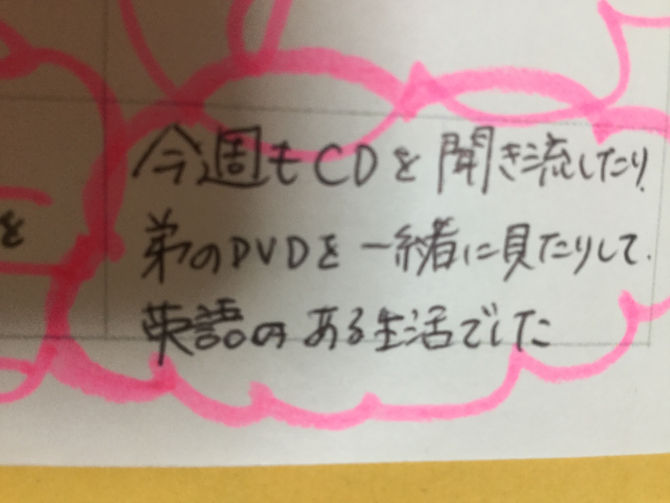 を
今週もCDを聞き流したり、
弟のDVDを一緒に見たりして、
英語のある生活でした